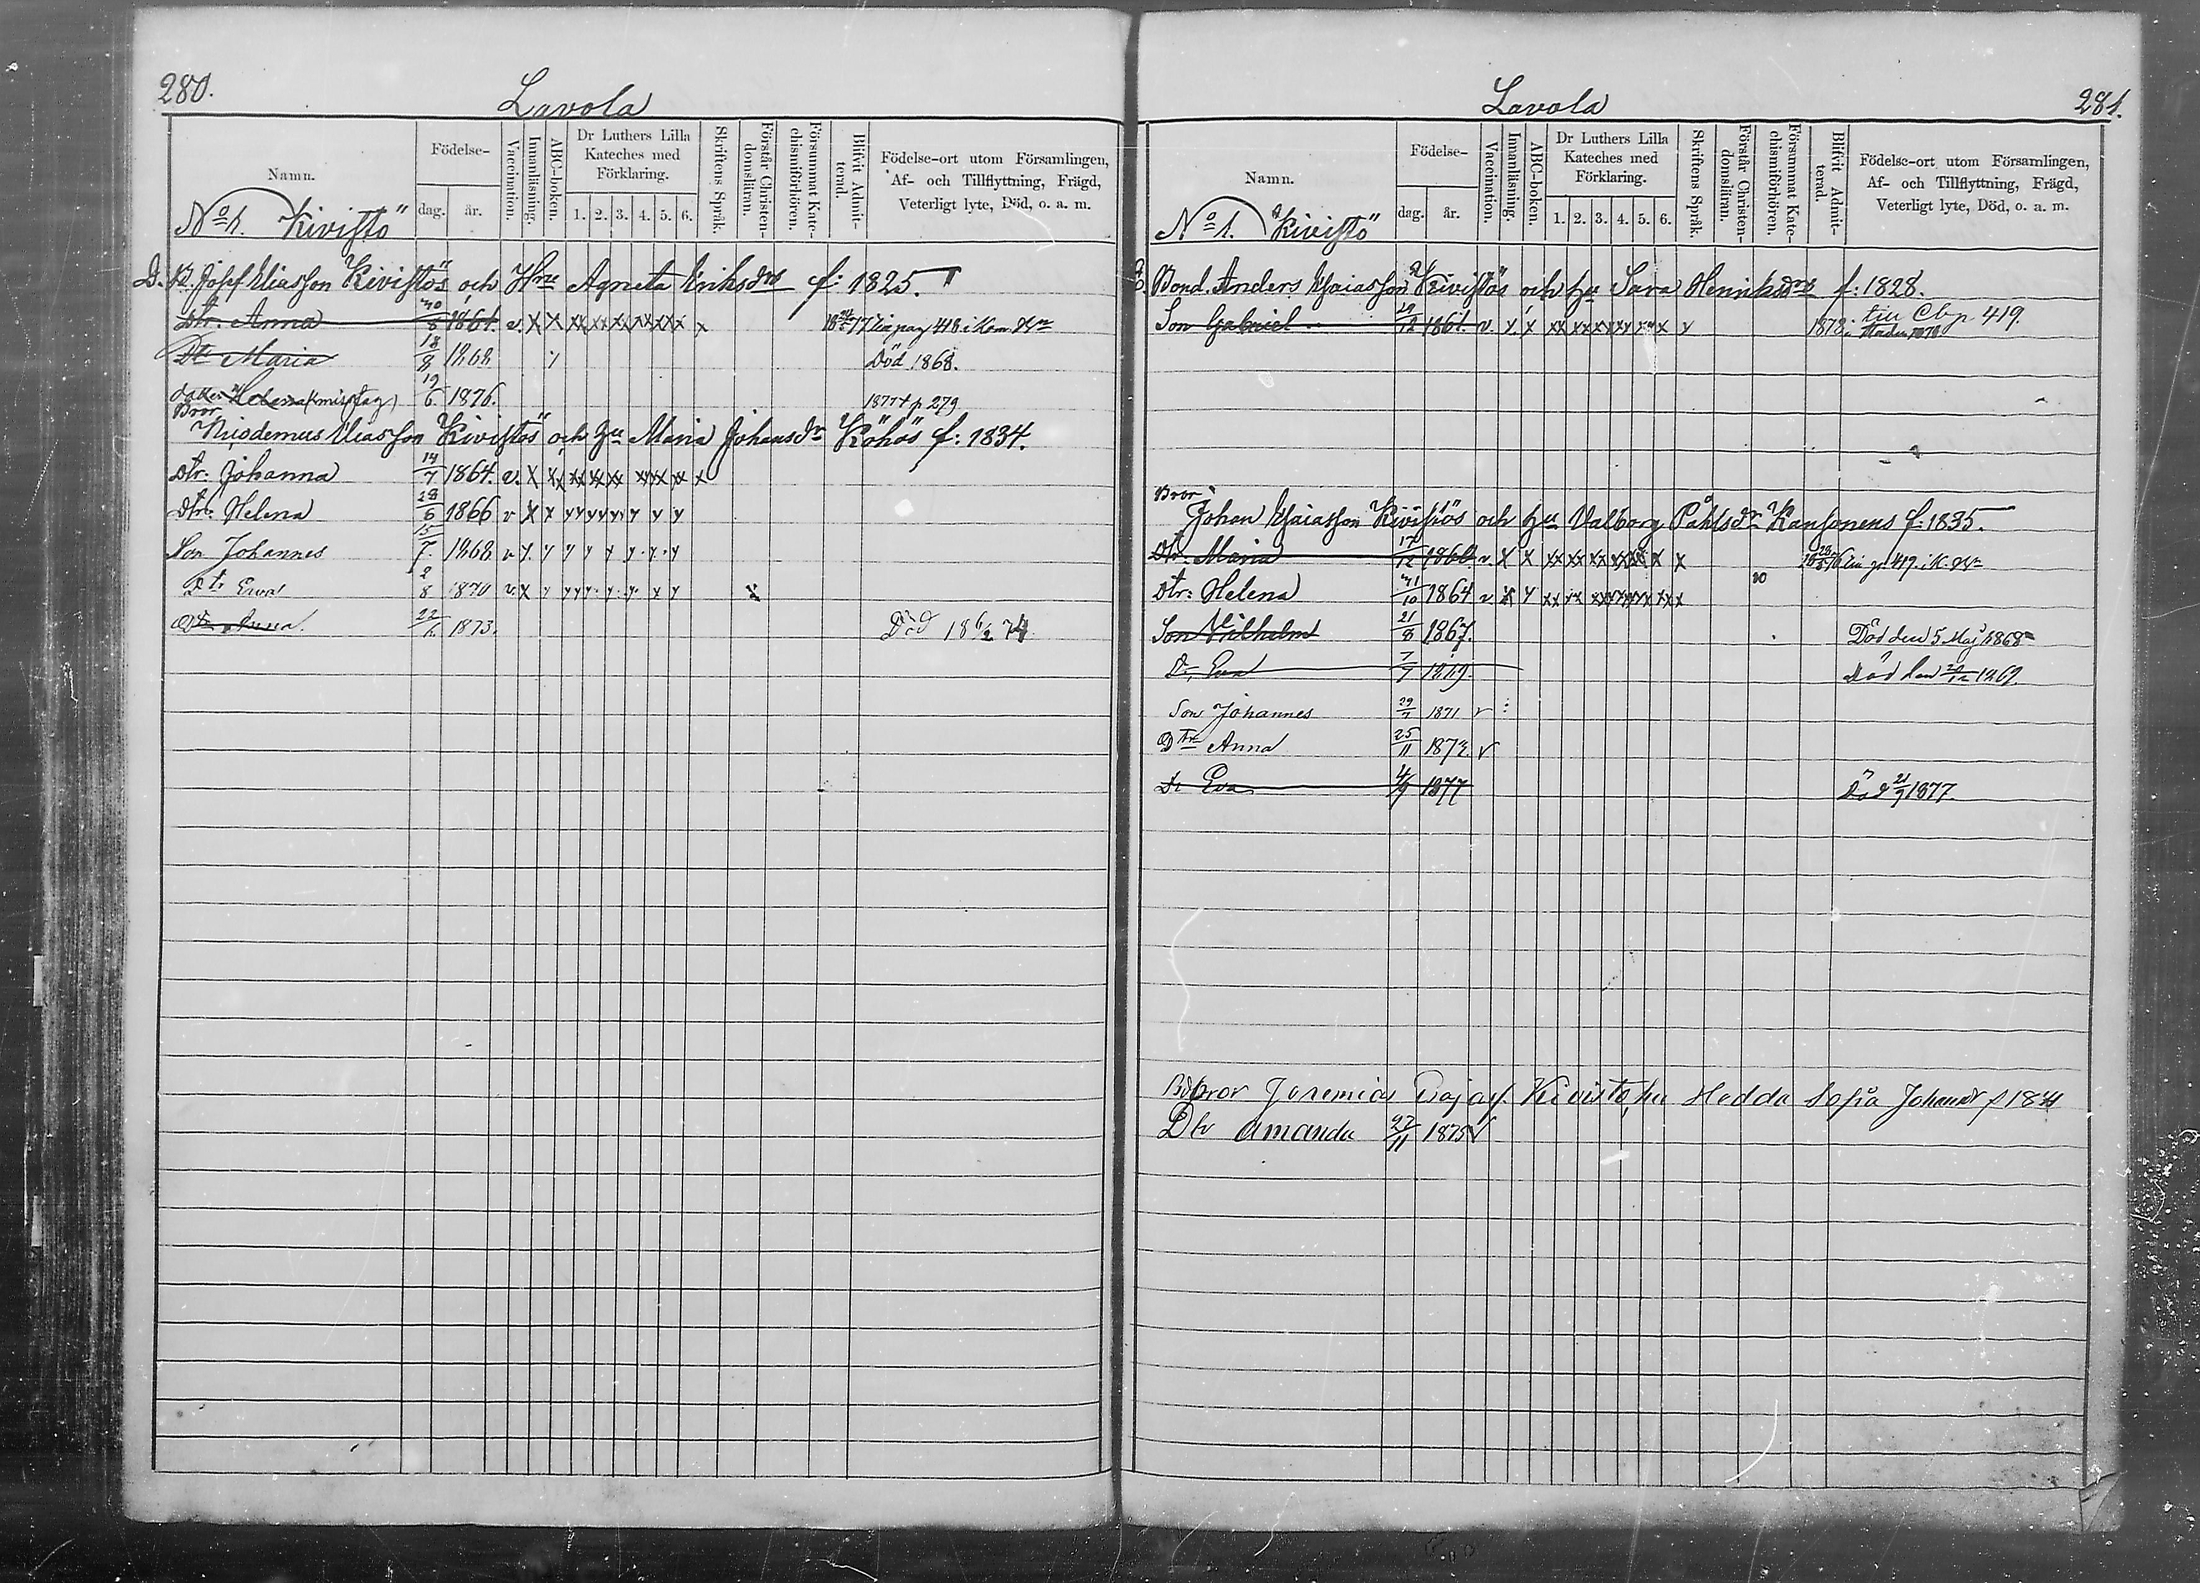 280.
Lavola
Namn.
Födelse-
dag.
år.
Vaccination.
Innanläsning.
ABC-boken.
Dr Luthers Lilla Kateches med Förklaring.
1. 2. 3. 4. 5. 6.
Skriftens Språk.
Förstår Christen-domsläran.
Försummat Kate-chismiförhören.
Blifvit Admit-terad.
Födelse-ort utom Församlingen,
Af- och Tillflyttning, Frägd,
Veterligt lyte, Död, o. a. m.
No 1. Kivistö
D. B. Josef Eliasson Kivistös och Hru Agneta Eriksdr f: 1825.
Dtr. Anna 8 1861. v. X X xx xx xx xx xx x x pag 418 i Kom.
Dtr Maria 18/8 1868 Död 1868.
dotter Helena (misstag) 19/6 1876. p 279
Bror
Nicodemus Eliasson Kivistös och hu Maria Johansdr Köhös f: 1834.
Dtr: Johanna 14/7 1864. v. X xx xx xx xx xx xx x
Dtr: Helena 28/6 1866 v X x y y y y y y y
Son Johannes 15/7. 1868 v y. y y y y y. y. y
Dtr Eva 2/8 1870 v. x y y y y y x y x
Dtr Anna. 22/6 1873. Död 18 6/2 74
Lavola
281.
Namn.
Födelse-
dag.
år.
Vaccination.
Innanläsning.
ABC-boken.
Dr Luthers Lilla Kateches med Förklaring.
1. 2. 3. 4. 5. 6.
Skriftens Språk.
Förstår Christen-domsläran.
Försummat Kate-chismiförhören.
Blifvit Admit-terad.
Födelse-ort utom Församlingen,
Af- och Tillflyttning, Frägd,
Veterligt lyte, Död, o. a. m.
No 1. Kivistö
Bond. Anders Esaiasson Kivistös och hu Sara Henriksdr f: 1828.
Son Gabriel 29/12 1861. v. x x xx xx xx xx x x y 1878 till Cb p 419.
Bror
Johan Esaiasson Kivistös och hu Valborg Påhlsdr Kansonens f: 1835.
Dtr: Maria 17/12 1860. v. X X xx xx xx xx x x x p 419 i K.
Dtr: Helena 1864 v x y xx xx xx xx xx xx
Son Vilhelm 21/8 1867. Död den 5 Maj 1868
Dr Eva 7/7 1869. Död den 1869.
Son Johannes 29/7 1871 v
Dtr Anna 25/11 1873. v
Dr Eva 4/9 1877 Död 21/9 1877.
bror Jeremias Esajass. Kivistö, hu Hedda Sofia Johansdr f 18
Dtr Amanda 27/11 1875 v